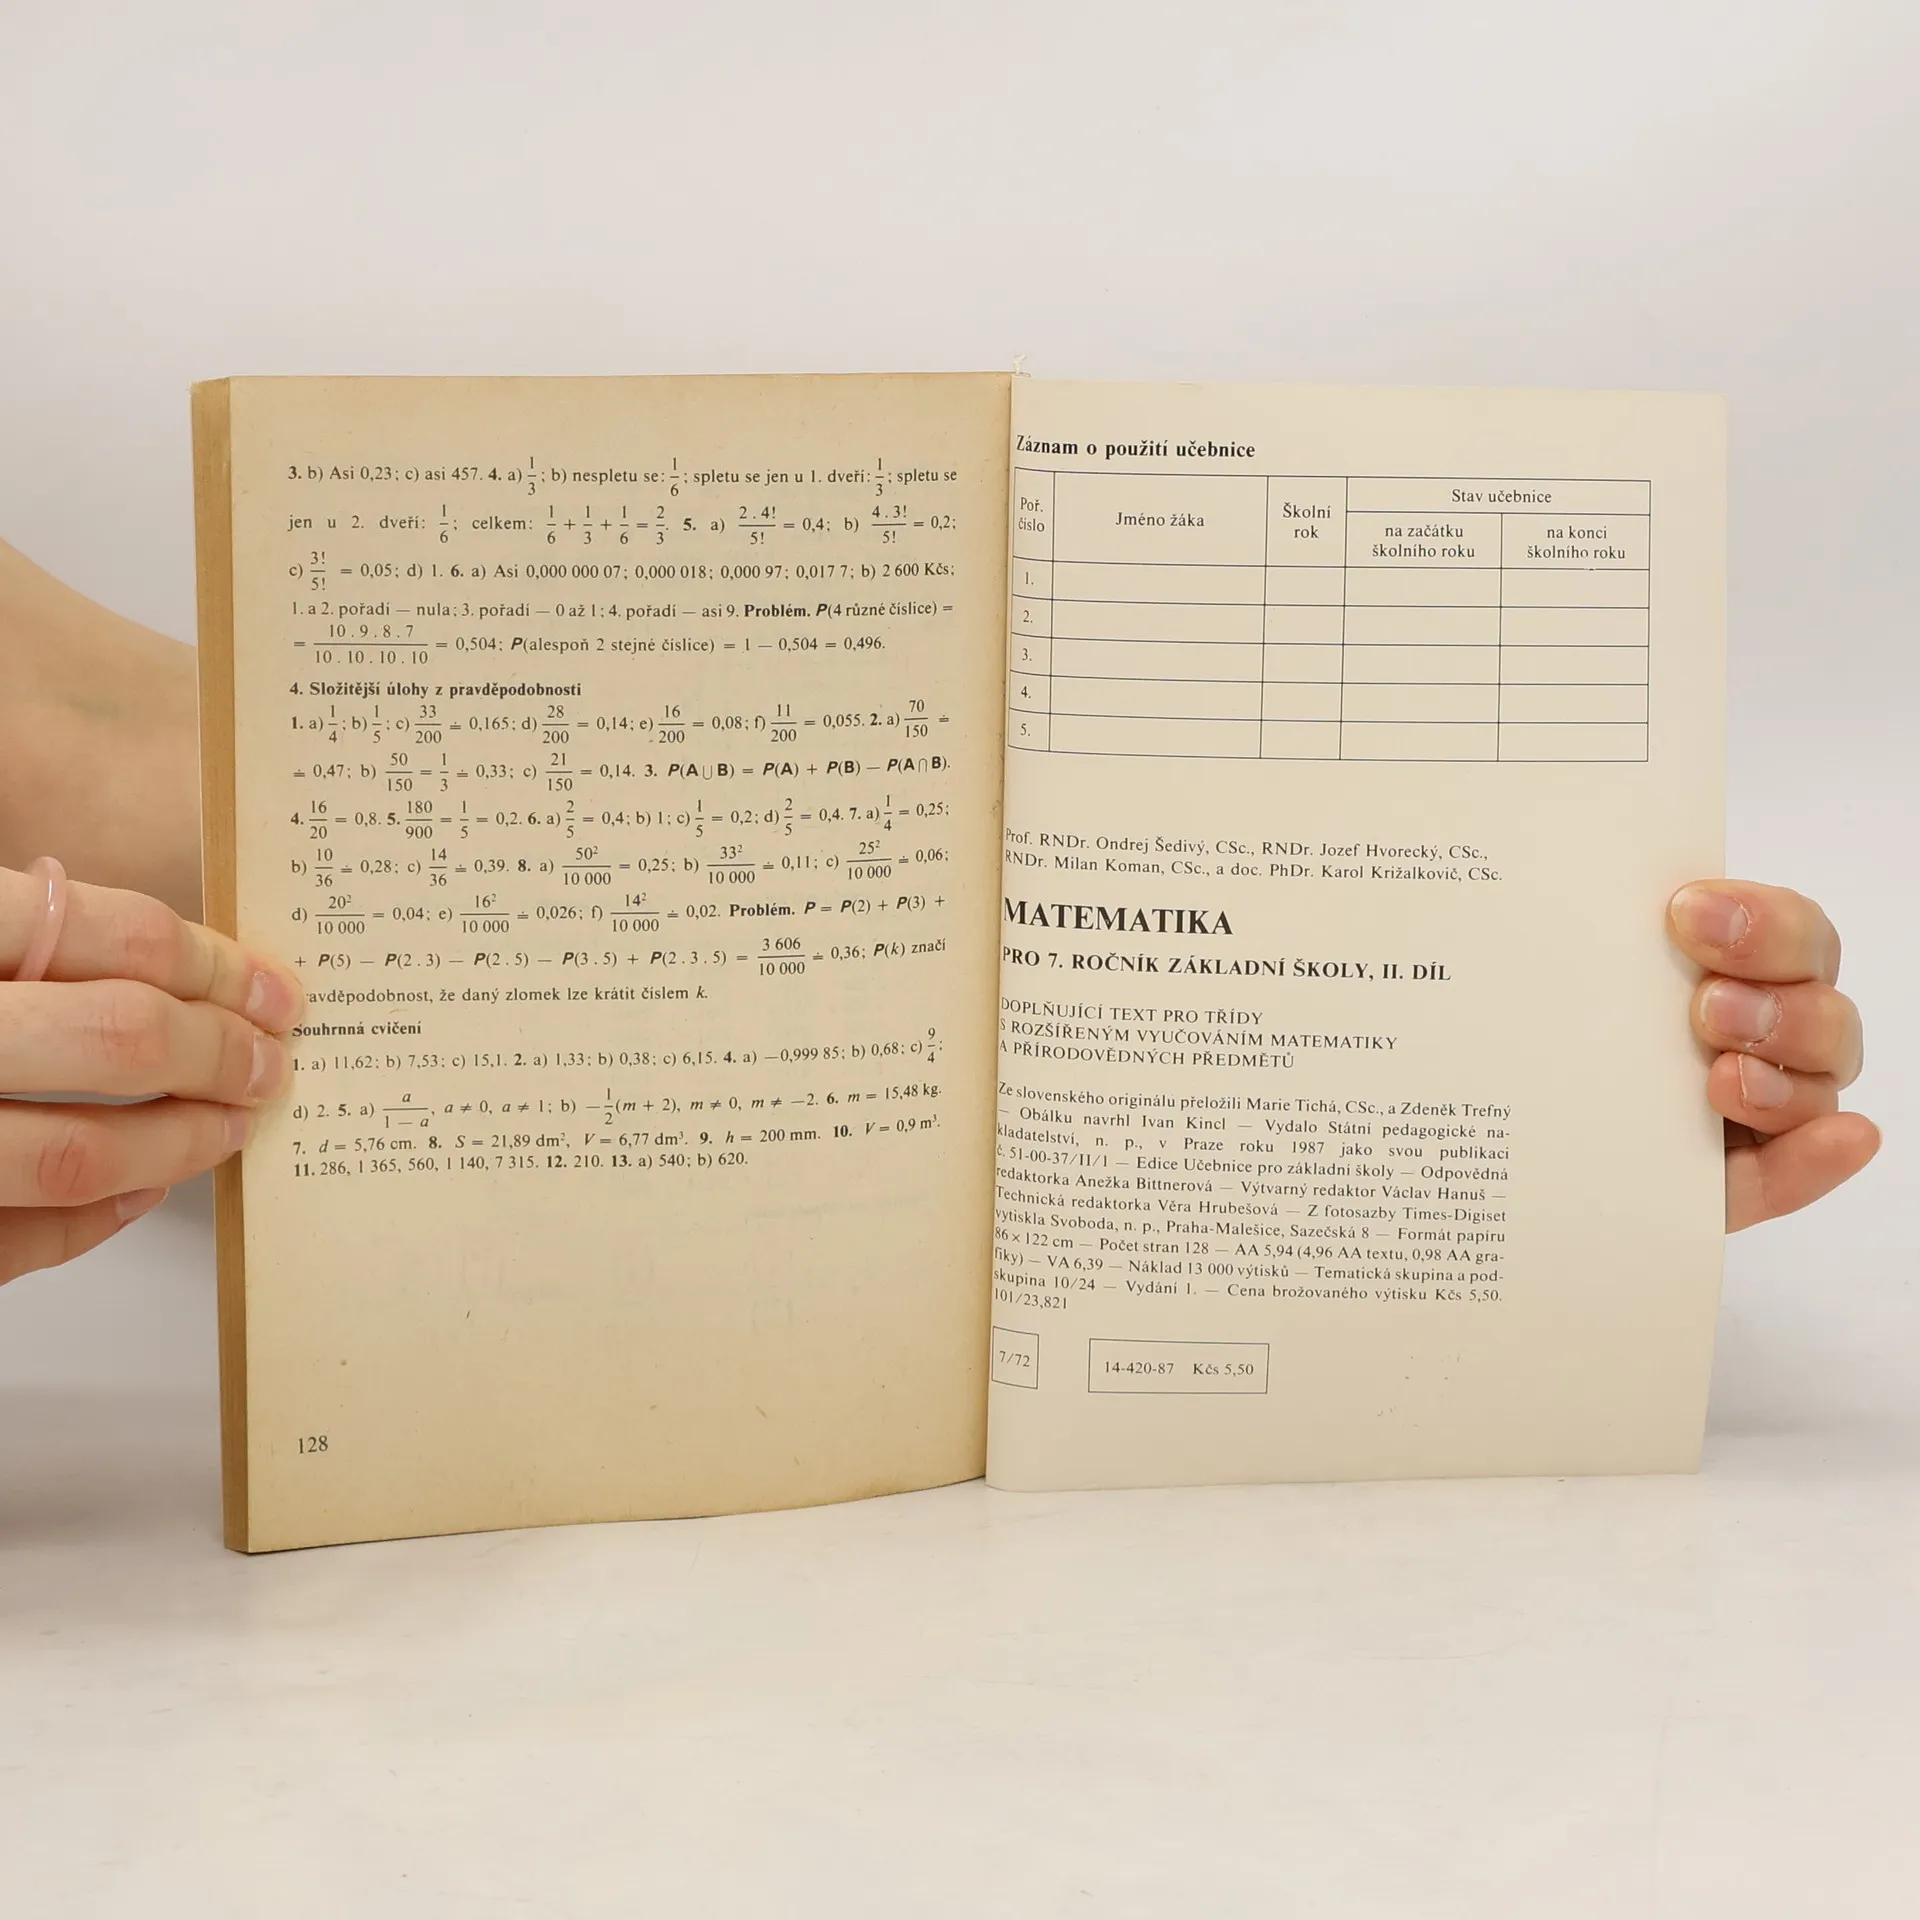 3. b) Asi 0,23; c) asi 457. 4. a) 1/3; b) nespletu se: 1/6; spletu se jen u 1. dveří: 1/3; spletu se
jen u 2. dveří: 1/6; celkem: 1/6 + 1/3 + 1/6 = 2/3. 5. a) 2 . 4!/5! = 0,4; b) 4 . 3!/5! = 0,2;
c) 3!/5! = 0,05; d) 1. 6. a) Asi 0,000 000 07; 0,000 018; 0,000 97; 0,017 7; b) 2 600 Kčs;
1. a 2. pořadí — nula; 3. pořadí — 0 až 1; 4. pořadí — asi 9. Problém. P(4 různé číslice) =
= 10 . 9 . 8 . 7/10 . 10 . 10 . 10 = 0,504; P(alespoň 2 stejné číslice) = 1 — 0,504 = 0,496.
4. Složitější úlohy z pravděpodobnosti
1. a) 1/4; b) 1/5; c) 33/200 ≐ 0,165; d) 28/200 = 0,14; e) 16/200 = 0,08; f) 11/200 = 0,055. 2. a) 70/150 ≐
≐ 0,47; b) 50/150 = 1/3 ≐ 0,33; c) 21/150 = 0,14. 3. P(A ∪ B) = P(A) + P(B) — P(A ∩ B).
4. 16/20 = 0,8. 5. 180/900 = 1/5 = 0,2. 6. a) 2/5 = 0,4; b) 1; c) 1/5 = 0,2; d) 2/5 = 0,4. 7. a) 1/4 = 0,25;
b) 10/36 ≐ 0,28; c) 14/36 ≐ 0,39. 8. a) 50²/10 000 = 0,25; b) 33²/10 000 ≐ 0,11; c) 25²/10 000 ≐ 0,06;
d) 20²/10 000 = 0,04; e) 16²/10 000 ≐ 0,026; f) 14²/10 000 ≐ 0,02. Problém. P = P(2) + P(3) +
+ P(5) — P(2 . 3) — P(2 . 5) — P(3 . 5) + P(2 . 3 . 5) = 3 606/10 000 ≐ 0,36; P(k) značí
avděpodobnost, že daný zlomek lze krátit číslem k.
Souhrnná cvičení
1. a) 11,62; b) 7,53; c) 15,1. 2. a) 1,33; b) 0,38; c) 6,15. 4. a) —0,999 85; b) 0,68; c) 9/4;
d) 2. 5. a) a/1 — a, a ≠ 0, a ≠ 1; b) —1/2(m + 2), m ≠ 0, m ≠ —2. 6. m = 15,48 kg.
7. d = 5,76 cm. 8. S = 21,89 dm², V = 6,77 dm³. 9. h = 200 mm. 10. V = 0,9 m³.
11. 286, 1 365, 560, 1 140, 7 315. 12. 210. 13. a) 540; b) 620.
128
Záznam o použití učebnice
Poř. číslo Jméno žáka Školní rok Stav učebnice
na začátku školního roku na konci školního roku
1.
2.
3.
4.
5.
Prof. RNDr. Ondrej Šedivý, CSc., RNDr. Jozef Hvorecký, CSc.,
RNDr. Milan Koman, CSc., a doc. PhDr. Karol Križalkovič, CSc.
MATEMATIKA
PRO 7. ROČNÍK ZÁKLADNÍ ŠKOLY, II. DÍL
DOPLŇUJÍCÍ TEXT PRO TŘÍDY
S ROZŠÍŘENÝM VYUČOVÁNÍM MATEMATIKY
A PŘÍRODOVĚDNÝCH PŘEDMĚTŮ
Ze slovenského originálu přeložili Marie Tichá, CSc., a Zdeněk Trefný
— Obálku navrhl Ivan Kincl — Vydalo Státní pedagogické na-
kladatelství, n. p., v Praze roku 1987 jako svou publikaci
č. 51-00-37/II/1 — Edice Učebnice pro základní školy — Odpovědná
redaktorka Anežka Bittnerová — Výtvarný redaktor Václav Hanuš —
Technická redaktorka Věra Hrubešová — Z fotosazby Times-Digiset
vytiskla Svoboda, n. p., Praha-Malešice, Sazečská 8 — Formát papíru
86 × 122 cm — Počet stran 128 — AA 5,94 (4,96 AA textu, 0,98 AA gra-
fiky) — VA 6,39 — Náklad 13 000 výtisků — Tematická skupina a pod-
skupina 10/24 — Vydání 1. — Cena brožovaného výtisku Kčs 5,50.
101/23,821
7/72
14-420-87 Kčs 5,50